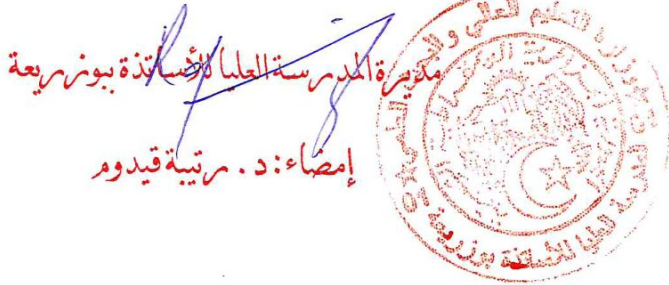 مديرة المدرسة العليا للأساتذة ببوزريعة
إمضاء: د. رتيبة قيدوم
وزارة التعليم العالي والبحث العلمي
المدرسة العليا للأساتذة بوزريعة